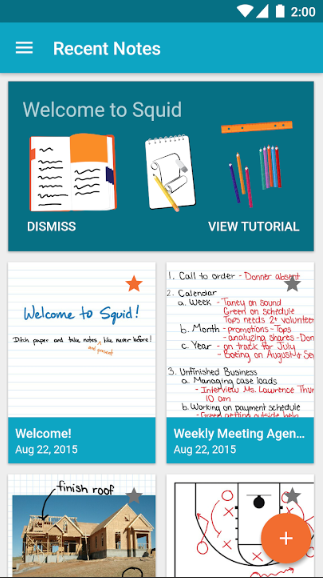 2:00
Recent Notes
Welcome to Squid
DISMISS
VIEW TUTORIAL
Welcome to Squid!
Ditch paper and take notes like never before!
and pencil
Welcome!
Aug 22, 2015
1. Call to order - Donner absent
2. Calendar
a. Week - Taney on sound
Green on schedule
Tops needs 2+ volunteers
b. Month - promotions - Tops
- analyzing shares - Don
c. Year - on track for July
- Boeing on August & Se
3. Unfinished Business
a. Managing case loads
- Interview Ms. Lawrence Thur
10 am
b. Working on payment schedule
- Green getting outside help
Weekly Meeting Agen...
Aug 22, 2015
finish roof